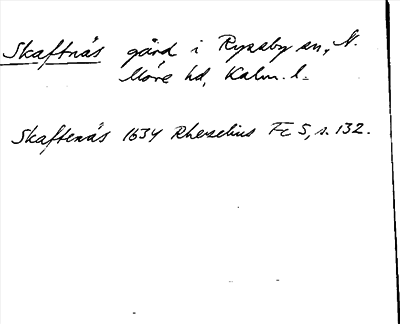 Skaftnäs gård i Ryssby sn, N.
Möre hd, Kalm. l.
Skaftenäs 1634 Rhezelius Fc 5, s. 132.